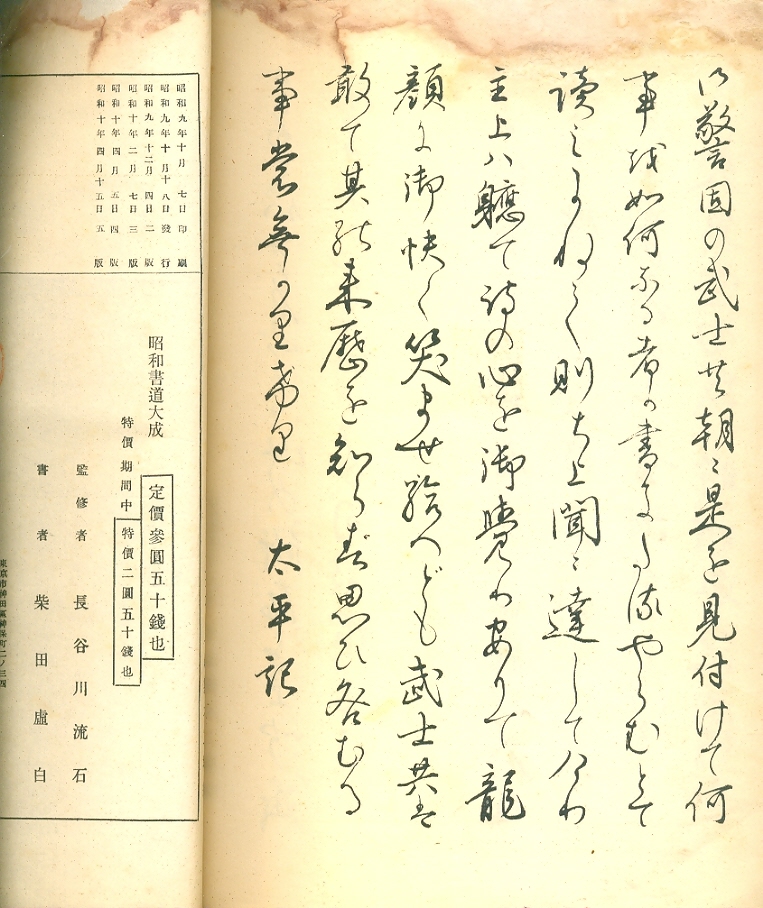 御警固の武士共朝ニ是を見付けて何
事を如何なる者か書きたるやらむとて
読みかねて則ち上聞ニ達してけり
主上ハ軈て詩の心を御覚りありて龍
顔に御快く笑ませ給へども武士共は
敢て其の来歴を知らず思ひ咎むる
事裳無かりけり 太平記
昭和九年十月 七日印刷
昭和九年十月十八日發行
昭和九年十二月 四日二版
昭和十年二月 七日三版
昭和十年四月 五日四版
昭和十年四月十五日五版
昭和書道大成
定價參圓五十錢也
特價期間中 特價二圓五十錢也
監修者 長谷川流石
書者 柴田虛白
東京市神田區神保町二ノ三四